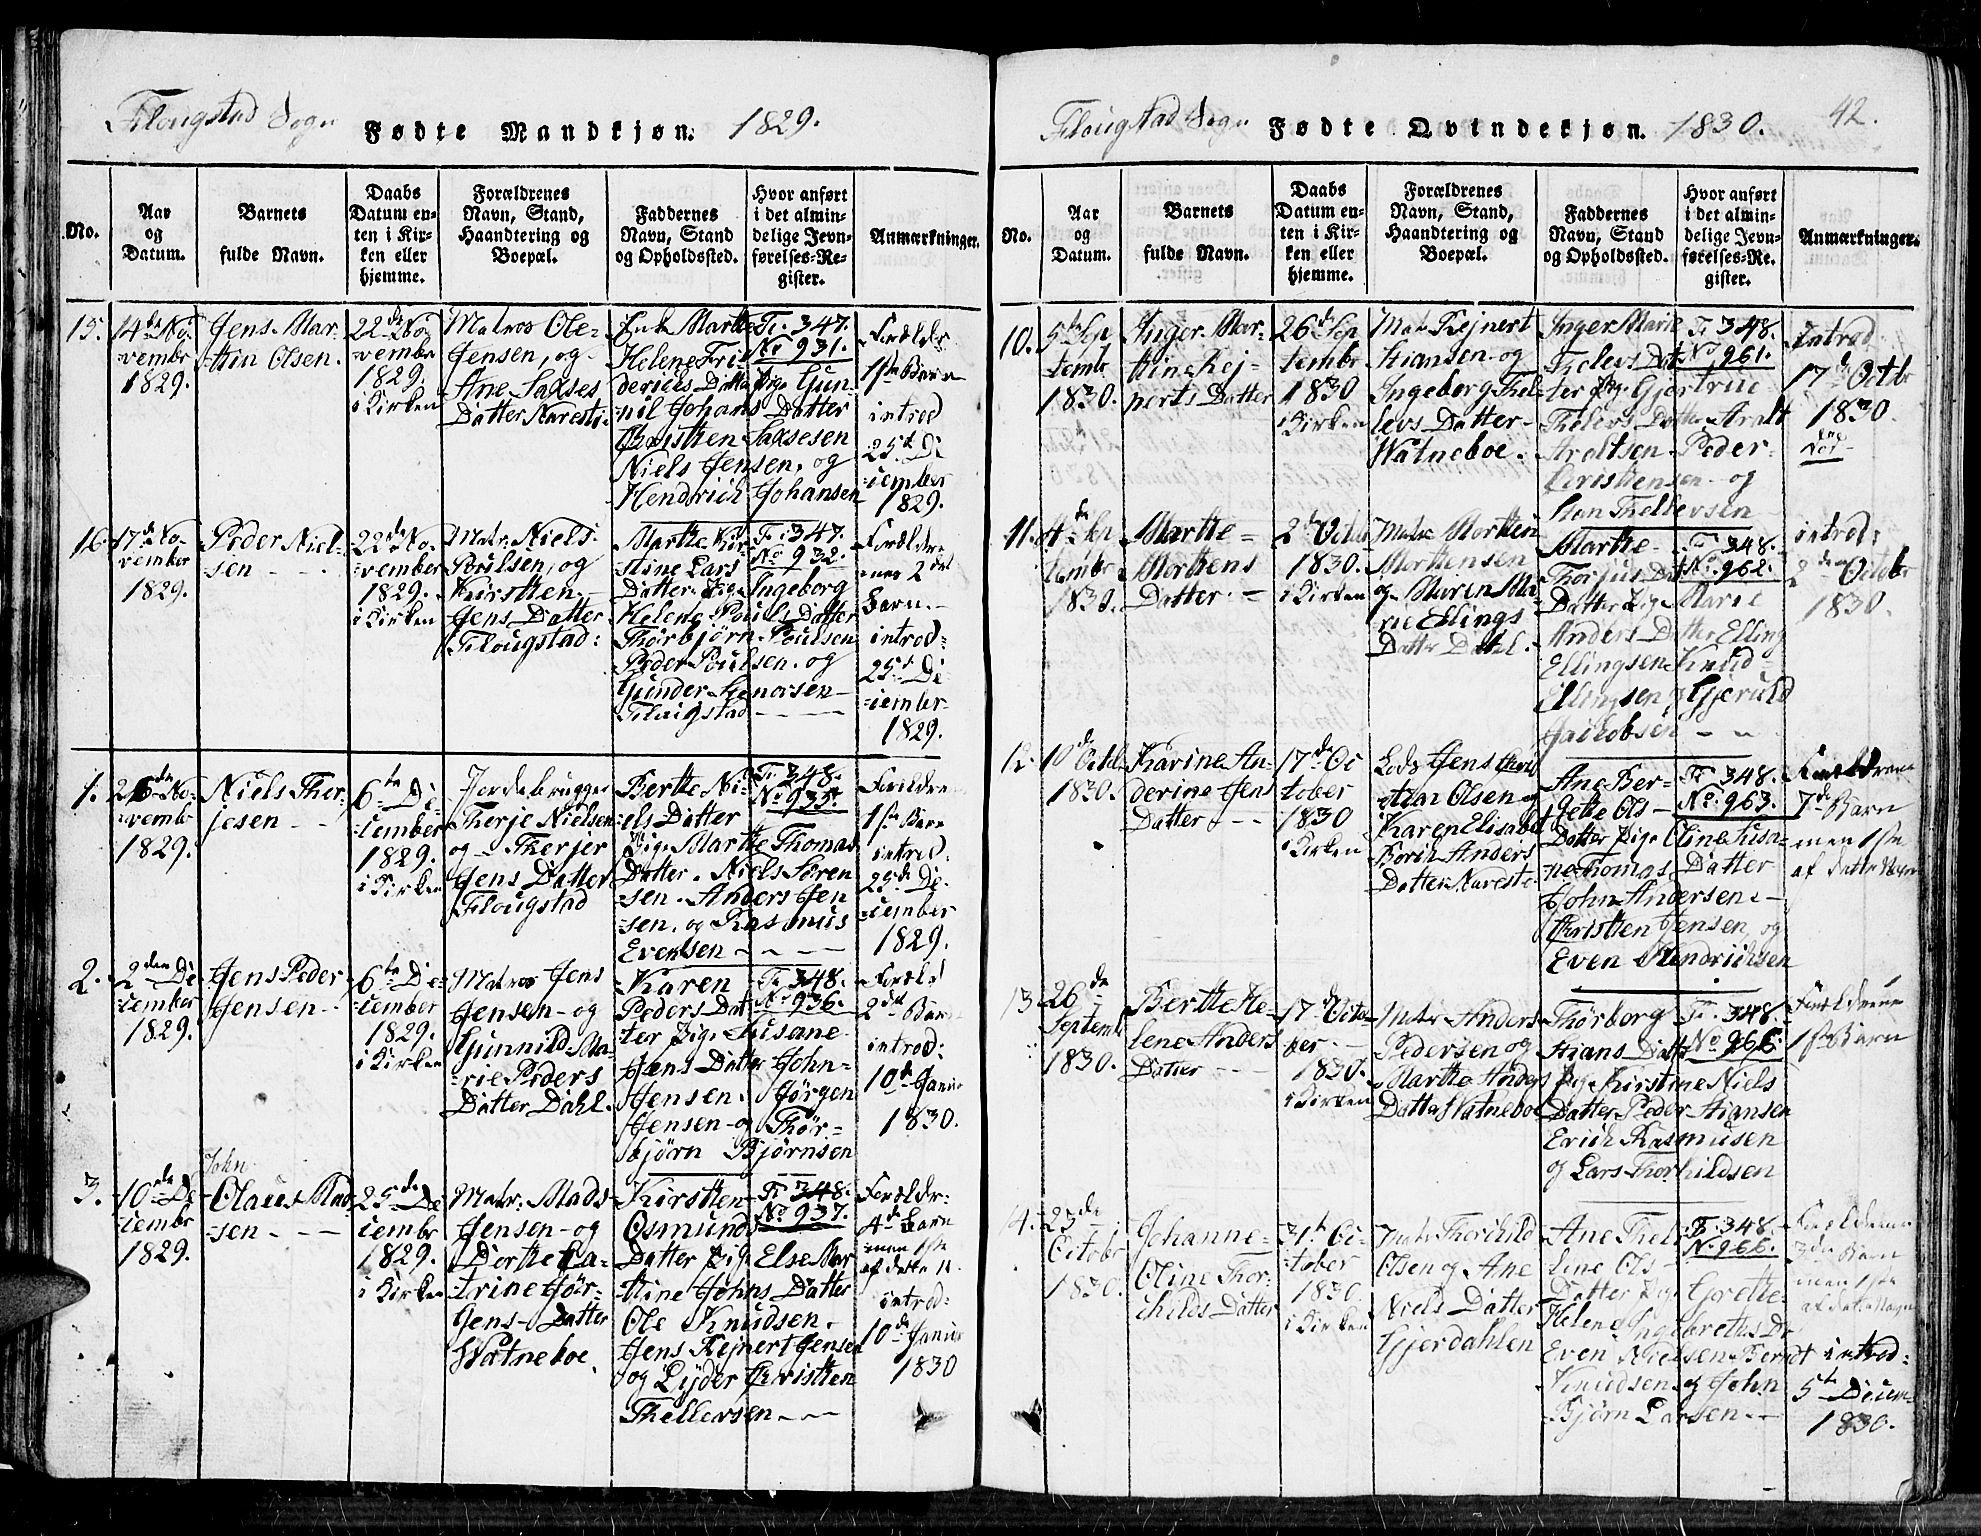 Flougstad Sogn Fødte Mandkjøn. 1829.
No.
Aar
og
Datum.
Barnets
fulde Navn.
Daabs
Datum en-
ten i Kir-
ken eller
hjemme.
Forældrenes
Navn, Stand,
Haandtering og
Boepæl.
Faddernes
Navn, Stand
og Opholdssted.
Hvor anført
i det almin-
delige Jevn-
førelses-Re-
gister.
Anmærkninger.
15.
14de No-
vembr
1829.
Jens Mar-
thin Olsen.
22de No-
vembr
1829.
i Kirken
Matros Ole
Jensen, og
Ane Saxses
Datter Naresti
Enk Marthe
Helene Fri-
derices Datter Pige Gun-
nil Johans Datter
Christen Saxsesen
Niels Jensen, og
Hendrich Johansen
Fr. 347.
No 931.
Forældr
1ste Barn
introd
25d De-
cember
1829.
16
17de No-
vember
1829.
Peder Niel-
sen
22de No-
vember
1829.
i Kirken
Matr. Niels
Poulsen, og
Kirstten
Jens Datter
Flougstad:
Marthe Kir-
stine Lars
Datter Pige Ingeborg
Helene Pouls Datter
Thorbjørn Poulsen
Peder Poulsen og
Gunder
Flougstad
Fr. 347.
No 932.
Forældre
nes 2det
Barn.
introd:
25d De-
cember
1829.
1.
26de No-
vembr
1829.
Niels Ther-
jesen
6te De-
cember
1829.
i Kirken
Jordebrugger
Therje Nielsen
og Therjer
Jens Datter
Flougstad
Berthe Ni-
els Datter
Pige Marthe Thomas
Datter. Niels Søren
sen. Anders Jen
sen, og Rasmus
Evensen
Fr. 348.
No 935.
Forældre
1ste Barn
introd:
25de De-
cember
1829.
2.
2den De-
cember
1829.
Jens Peder
Jensen
6te De-
cember
1829.
i Kirken
Matros Jens
Jensen og
Gunnild Ma-
rie Peders
Datter Dahl.
Karen
Peders Dat-
ter Pige Susane
Jens Datter John
Jensen. Jørgen
Jensen og Thor-
bjørn Bjørnsen
Fr. 348.
No 936.
Foræld
2det Barn
introd:
10d Januar
1830.
3.
10de De-
cembr
1829.
John
Olaus Mad-
sen
25de De-
cembr
1829.
i Kirken
Matr: Mads
Jensen og
Dorthe Ca-
trine Jør-
gens Datter
Watneboe.
Kirstten
Osmunds
Datter Pige Else Mar
thine Johns Datter
Ole Knudsen.
Jens Rejnert Jensen
og Lyder Christten
Thellefsen
Fr. 348.
No 937.
Forældr:
4de Barn
men 1ste
af dette N.
introd:
10d Januar
1830
Flougstad Sogn Fødte Qvindekjøn. 1830. 42.
No.
Aar
og
Datum.
Barnets
fulde Navn.
Daabs
Datum en-
ten i Kir-
ken eller
hjemme.
Forældrenes
Navn, Stand,
Haandtering og
Boepæl.
Faddernes
Navn, Stand
og Opholdssted.
Hvor anført
i det almin-
delige Jevn-
førelses-Re-
gister.
Anmærkninger.
10.
5te Sep
tembr
1830.
Inger Mar-
thine Rej-
nerts Datter
26de Sep
tembr
1830
i Kirken
Matr Rejnert
Stiansen og
Ingeborg Thel-
levs Datter
Watneboe.
Inger Marie
Thelevs Dat-
ter Pige Gjertrue
Thelevs Datter Aralt
Araltsen Peder
Christensen og
Stian Thellefsen
Fr 348.
No 961.
Introd
17de Octbr
1830.
11.
4de Sep
tembr
1830.
Marthe
Morthens
Datter
2de Octob
1830.
i Kirken
Matr Morthen
Morthensen
og Maren Ma-
rie Ellings
Datter Dahl.
Marthe
Thorjus Dat
Datter Pige Marie
Anders Datter Elling
Ellingsen Knud
Ellingsen og Gjeruld
Jacobsen
Fr. 348.
No. 962.
introd:
2den Octobr
1830.
12.
10de Octbr
1830.
Karine An-
derine Jens
Datter
17de Oc
tober
1830
i Kirken
Lods Jens Chris
stian Olsen og
Karen Elisabet
Borie Anders
Datter Nareste
Ane Ber-
gette Ols
Datter Pige Oline Susa-
ne Tomas Datter
John Andersen.
Christten Jensen, og
Even Hendrichsen
Fr 348.
No. 963.
Forældrene
7de Barn
men 1ste
af dette Navn
13
26de
Septemb
1830.
Berthe He-
lene Anders
Datter
17de Octo-
ber
1830.
i Kirken
Matr Anders
Pedersen og
Marthe Anders
Datter Watneboe
Thorborg
Stians Datter
Pige Kirstine Niels
Datter Peder Stiansen
Erich Rasmusen
og Lars Thorkildsen
Fr. 348.
Forældrene
1ste Barn
14.
23de
Octobr
1830.
Johanne
Oline Thor-
childs Datter
31te Oc-
tober
1830.
i Kirken
Matr Thorchild
Olsen og Ane
Niels Datter
Gjerdahlen
Ane Thel
line Ols
Datter Pige Grethe
Helene Ingebreths Dr
Even Nielsen Berndt
Knudsen og John
Bjørn Larsen
Fr. 348.
No. 966.
Forældrene
3de Barn
men 1ste
af dette Navn
introd:
5te Decem
1830.